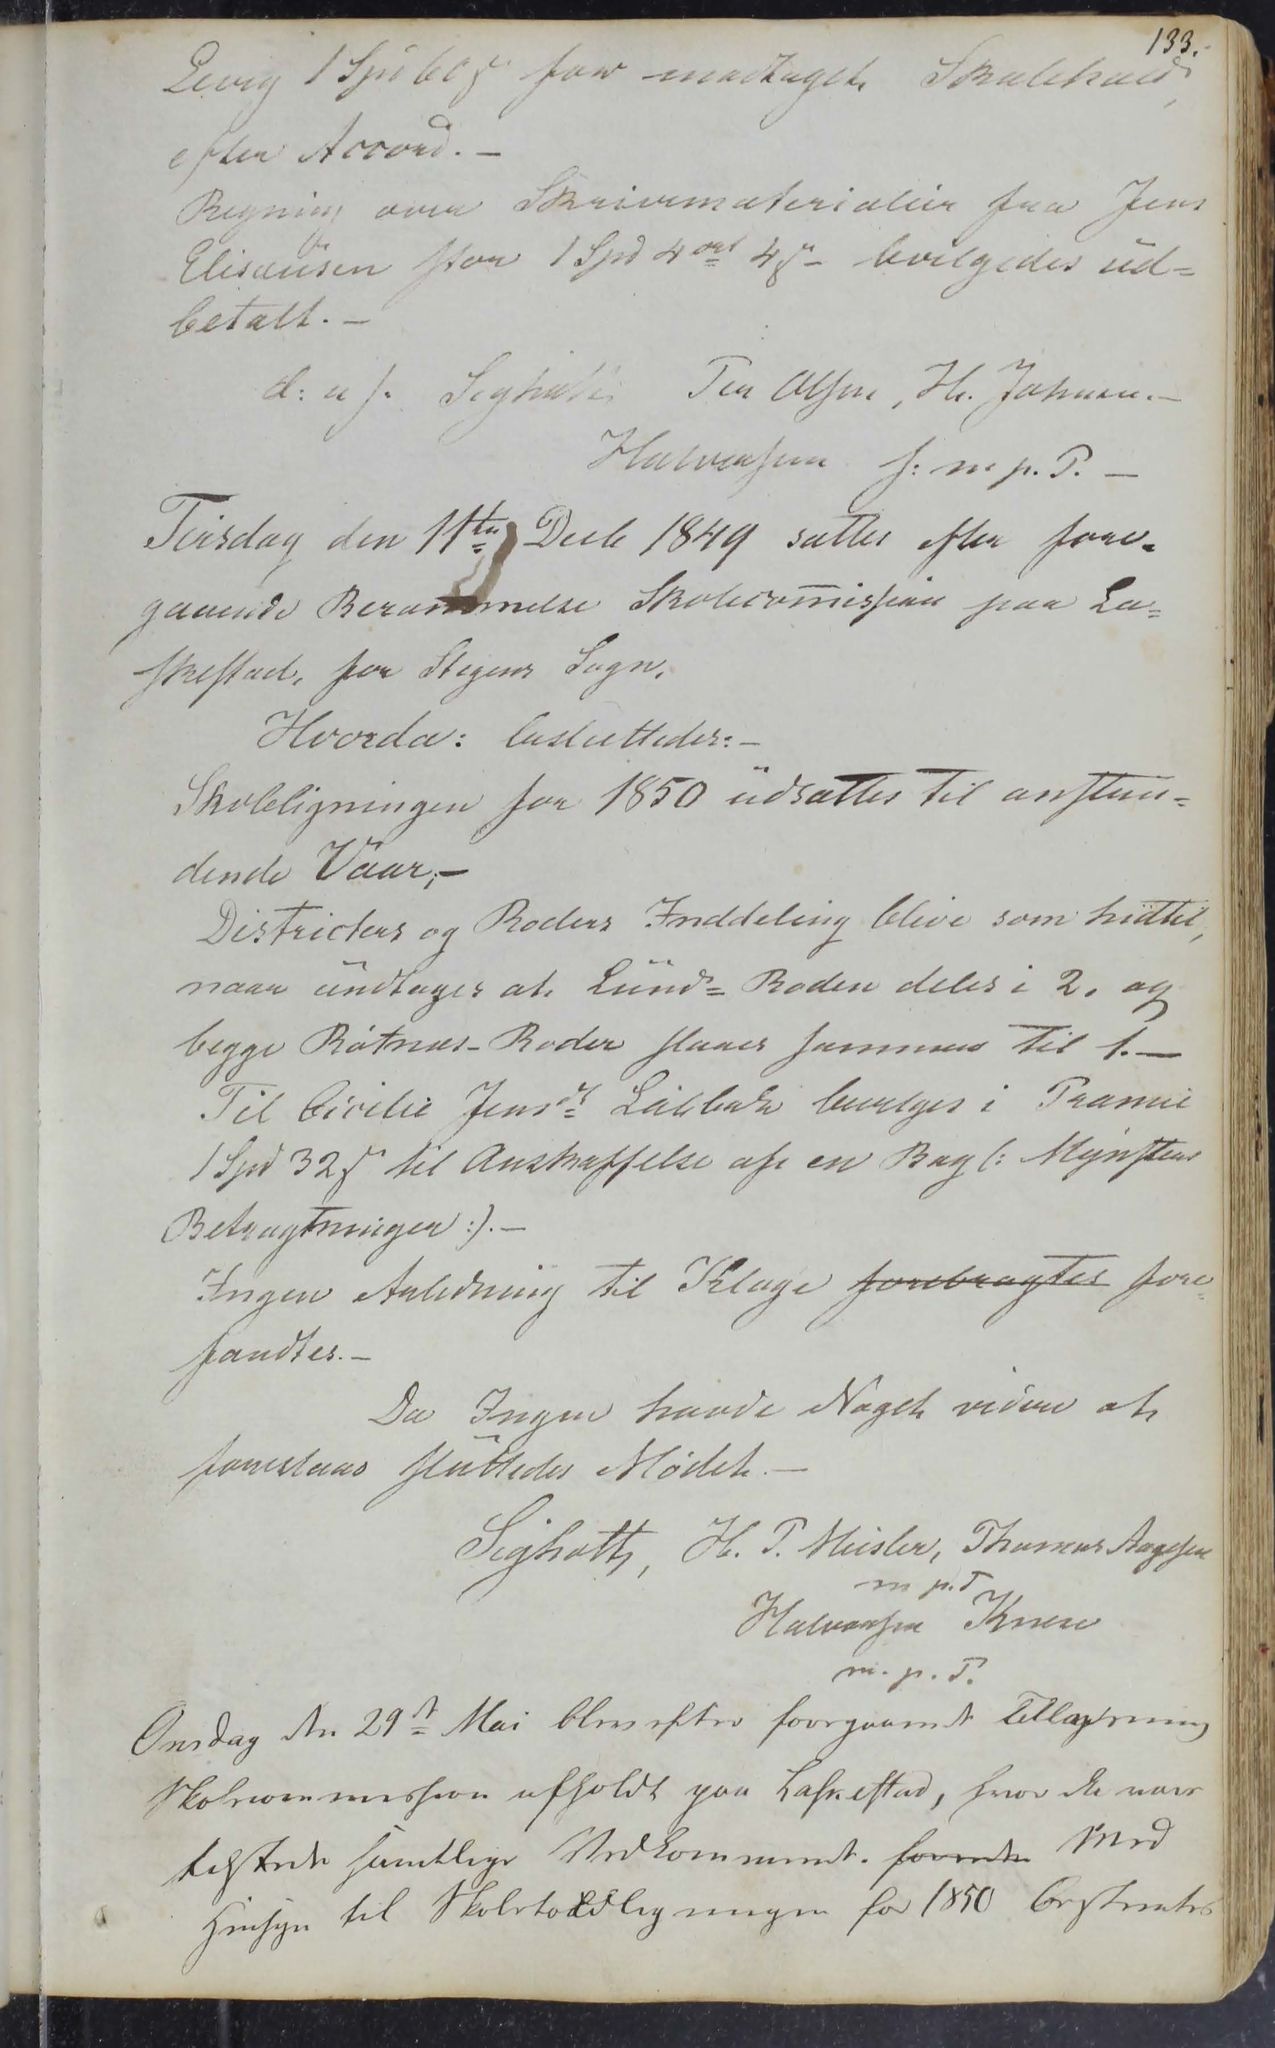 133.
Levig 1 Spd 60 ß for modtaget Skolehold,
efter Accord. –
Regning over Skrivematerialier fra Jens
Elisæusen stor 1 Spd 4 ort 4 ß – bevilgedes ud-
betalt. –
d: u s. Sigholt Peer Olsen, H. Johnsen. –
Halvorsen f: m p. P. –
Tirsdag den 11te Decb 1849 sattes efter fore-
gaaende Berammelse Skolecommission paa La-
skestad, for Stegens Sogn.
Hvorda: besluttedes: –
Skoleligningen for 1850 udsattes til anstun-
dende Vaar, –
Districters og Roders Inddeling blive som hidtil,
naar undtages at Lund- Roden deles i 2, og
begge Røtnes- Roder slaaes sammen til 1. –
Til Cicilie Jensdt Lilbak bevilges i Præmie
1 Spd 32 ß til Anskaffelse af en Bog (: Mynsters
Betragtninger :). –
Ingen Anledning til Klage forebragtes fore-
fandtes. –
Da Ingen havde Noget videre at
foreslaae sluttedes Mødet. –
Sigholt, H. P. Meisler, Thomas Aagesen
m p. P
Halvorsen Knen
m. p. P.
Onsdag den 29de Mai blev efter foregaaende Tillysning
Skolecommission afholdt paa Laskestad, hvor da vare
tilstede samtlige Vedkommende. forente Med
Hensyn til Skoletoldligningen for 1850 bestemtes